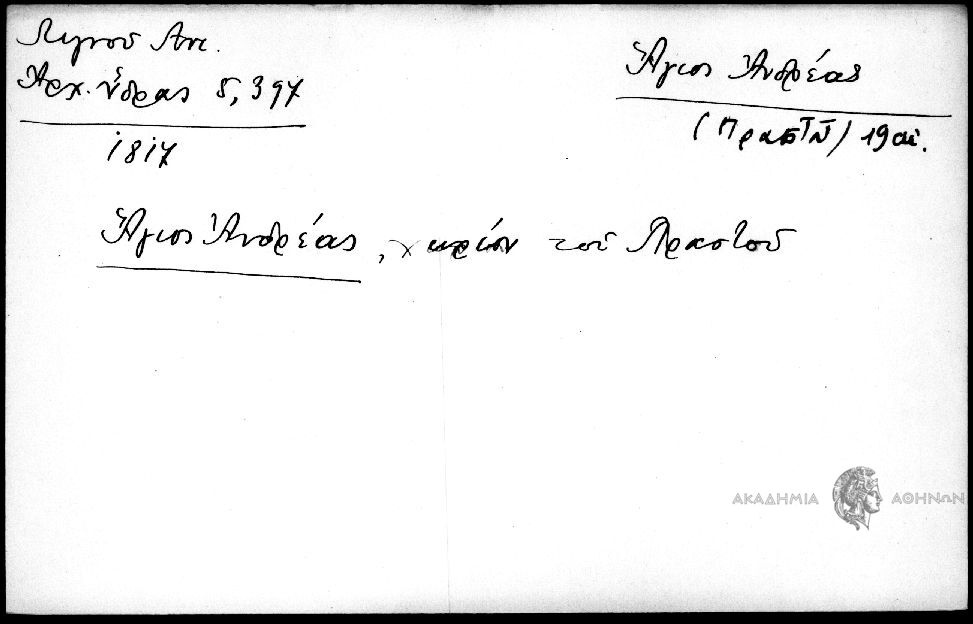 Λιγνού Αντ.
Ἀρχ. Ὕδρας 5, 397
1817
Ἅγιος Ἀνδρέας
(Πραστῦ) 19 αἰ.
Ἅγιος Ἀνδρέας, χωρίον τοῦ Πραστοῦ
ΑΚΑΔΗΜΙΑ ΑΘΗΝΩΝ